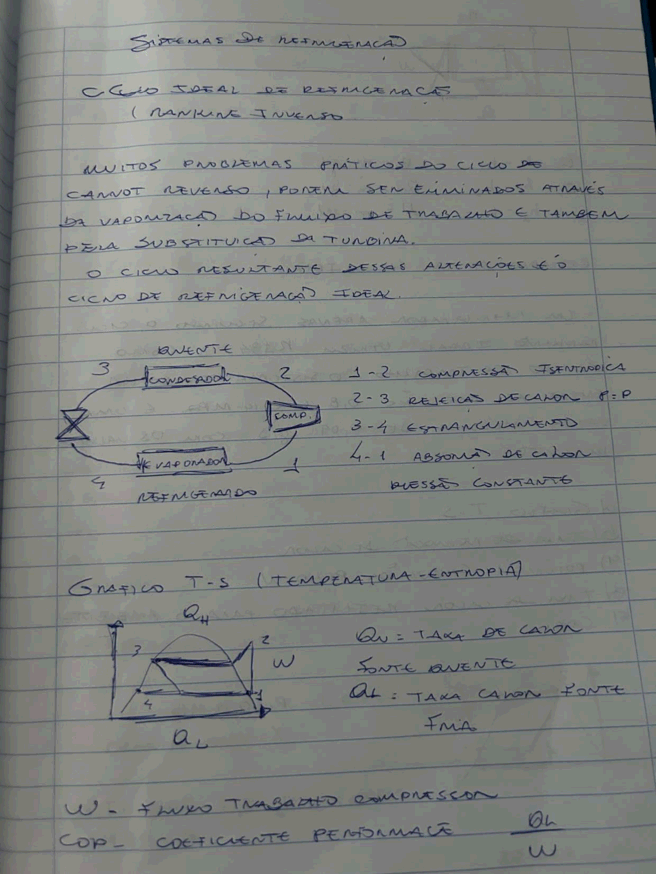 SISTEMAS DE REFRIGERAÇÃO
CICLO IDEAL DE REFRIGERAÇÃO
( RANKINE INVERSO
MUITOS PROBLEMAS PRÁTICOS DO CICLO DE
CARNOT REVERSO, PODEM SER ELIMINADOS ATRAVÉS
DA VAPORIZAÇÃO DO FLUIDO DE TRABALHO E TAMBEM
PELA SUBSTITUIÇÃO DA TURBINA.
O CICLO RESULTANTE DESSAS ALTERAÇÕES É O
CICLO DE REFRIGERAÇÃO IDEAL.
QUENTE
3 CONDESADOR 2
COMP.
4 EVAPORADOR 1
REFRIGERADO
1-2 COMPRESSÃO ISENTROPICA
2-3 REJEIÇÃO DE CALOR P=P
3-4 ESTRANGULAMENTO
4-1 ABSORÇÃO DE CALOR
PRESSÃO CONSTANTE
GRAFICO T-S (TEMPERATURA-ENTROPIA)
QH
3 2
W
4 1
QL
QH = TAXA DE CALOR
FONTE QUENTE
QL = TAXA CALOR FONTE
FRIA
W - FLUXO TRABALHO COMPRESSOR
COP - COEFICIENTE PERFORMACE QL
W